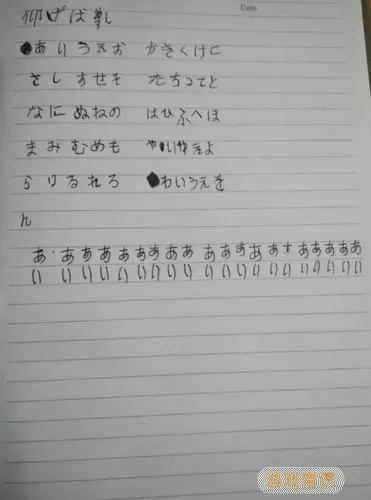 Date
仰げば尊し
あいうえお かきくけこ
さしすせそ たちつてと
なにぬねの はひふへほ
まみむめも やいゆえよ
らりるれろ わいうえを
ん
あ あ あ あ あ あ あ あ あ あ あ あ あ あ あ あ あ あ あ
い い い い い い い い い い い い い い い い い い い